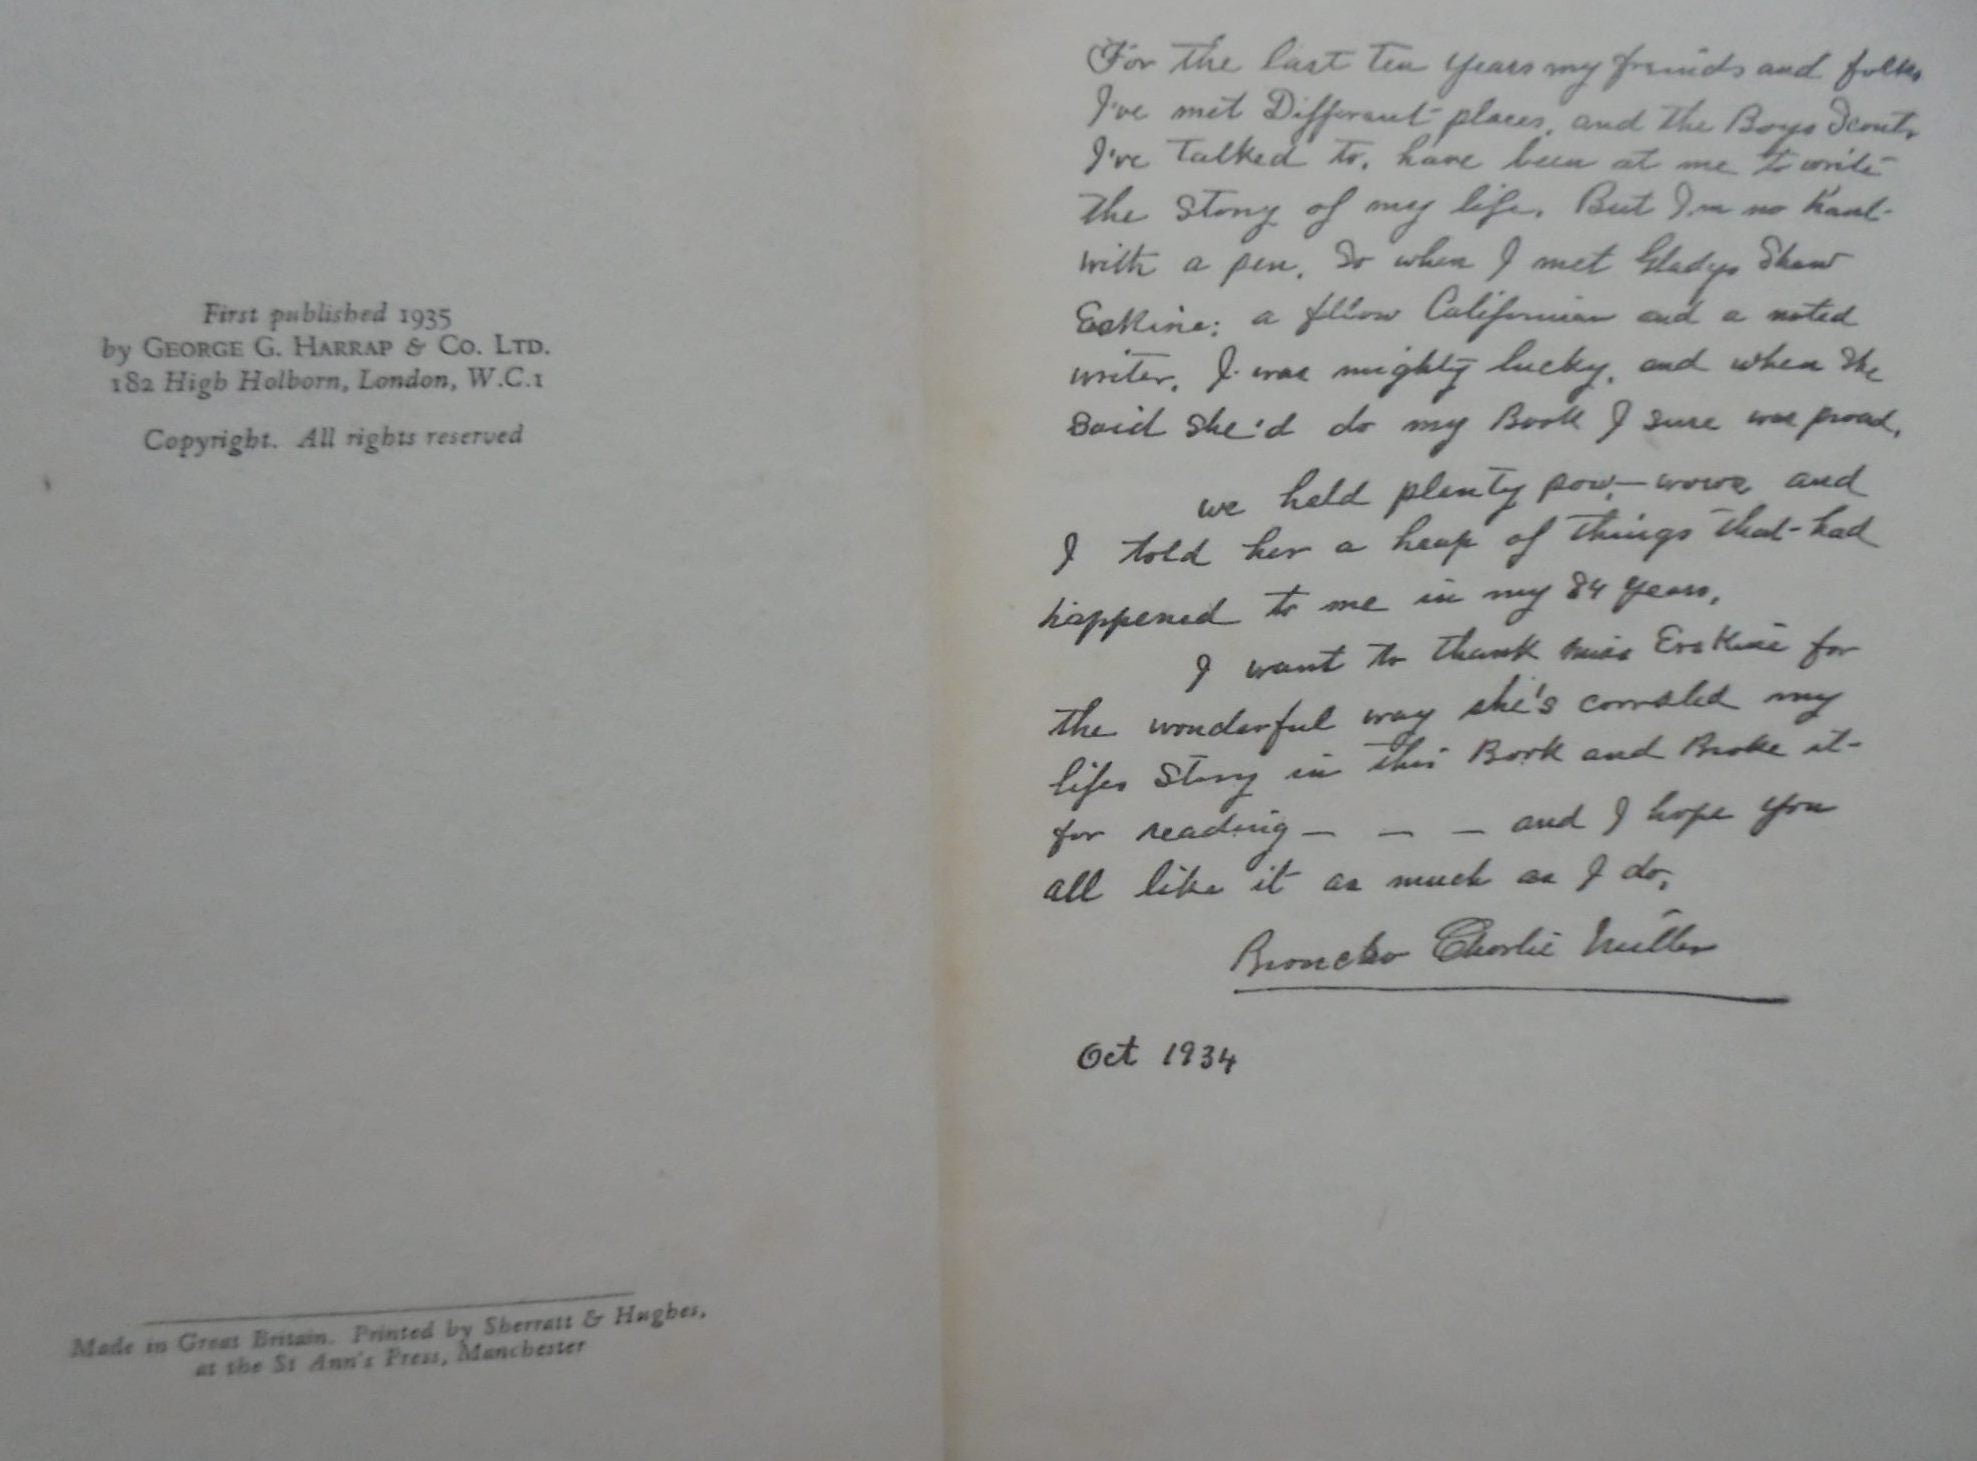 First published 1935
by GEORGE G. HARRAP & CO. LTD.
182 High Holborn, London, W.C.1
Copyright. All rights reserved
Made in Great Britain. Printed by Sherratt & Hughes,
at the St Ann's Press, Manchester
For the last ten years my freinds and folks
I've met Differant places, and the Boys Scouts
I've talked to, have been at me to write
the story of my life. But I'm no hand
with a pen. So when I met Gladys Shaw
Erskine; a fellow Californian and a noted
writer, I was mighty lucky, and when she
said she'd do my Book I sure was proud.
we held plenty pow-wows and
I told her a heap of things that had
happened to me in my 84 years.
I want to thank miss Erskine for
the wonderful way she's corraled my
lifes story in this Book and Broke it
for reading — — — and I hope you
all like it as much as I do,
Broncho Charlie Miller
Oct 1934